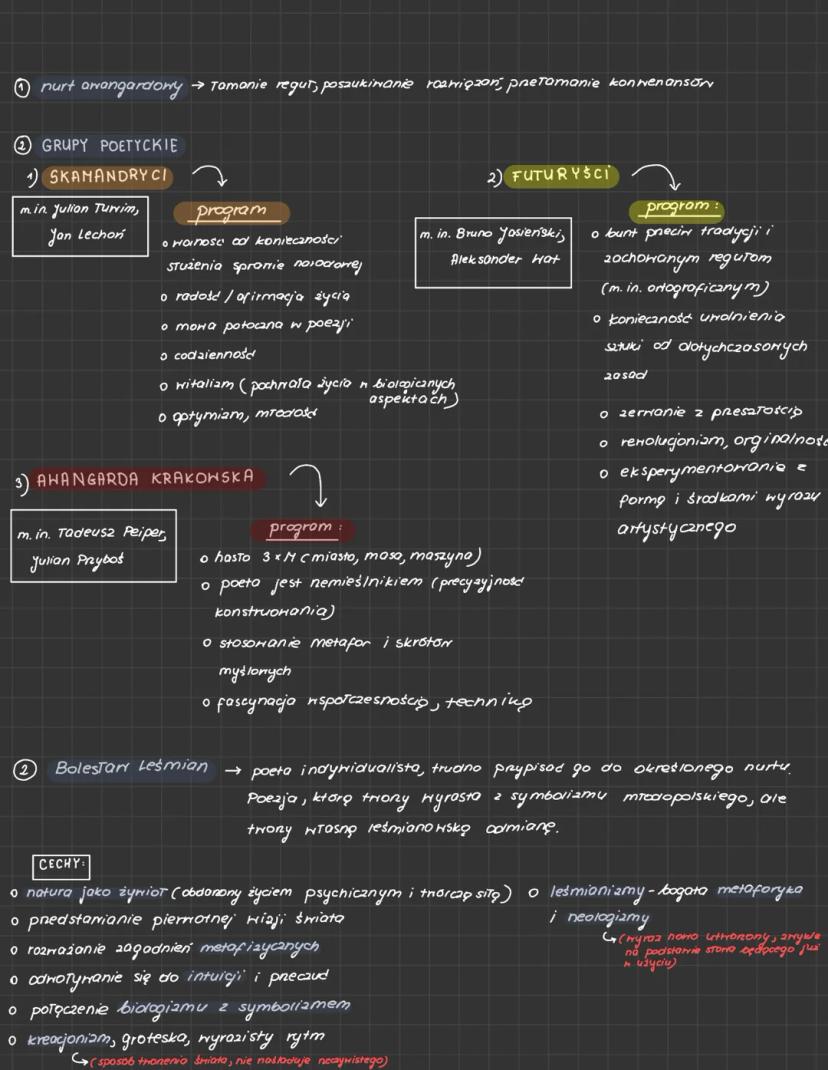 1 nurt awangardowy → łamanie reguł, poszukiwanie rozwiązań, przełamanie konwenansów
2 GRUPY POETYCKIE
1) SKAMANDRYCI
m.in. Julian Tuwim,
Jan Lechoń
program
o wolność od konieczności
służenia sprawie narodowej
o radość / afirmacja życia
o mowa potoczna w poezji
o codzienność
o witalizm (pochwała życia w biologicznych
aspektach)
o optymizm, młodość
2) FUTURYŚCI
m.in. Bruno Jasieński,
Aleksander Wat
program:
o bunt przeciw tradycji i
zachowanym regułom
(m.in. ortograficznym)
o konieczność uwolnienia
sztuki od dotychczasowych
zasad
o zerwanie z przeszłością
o rewolucjonizm, orginalność
o eksperymentowanie z
formą i środkami wyrazu
artystycznego
3) AWANGARDA KRAKOWSKA
m.in. Tadeusz Peiper,
Julian Przyboś
program:
o hasło 3xM (miasto, masa, maszyna)
o poeta jest rzemieślnikiem (precyzyjność
konstruowania)
o stosowanie metafor i skrótów
myślowych
o fascynacja współczesnością, techniką
2 Bolesław Leśmian → poeta indywidualista, trudno przypisać go do określonego nurtu.
Poezja, którą tworzy wyrasta z symbolizmu młodopolskiego, ale
tworzy własną leśmianowską odmianę.
CECHY:
o natura jako żywioł (obdarzony życiem psychicznym i twórczą siłą)
o przedstawianie pierwotnej wizji świata
o rozważanie zagadnień metafizycznych
o odwoływanie się do intuicji i przeczuć
o połączenie biologizmu z symbolizmem
o kreacjonizm, groteska, wyrazisty rytm
↳ (sposób tworzenia świata, nie naśladuje rzeczywistego)
o leśmianizmy - bogata metaforyka
i neologizmy
↳ (wyraz nowo utworzony, zwykle
na podstawie słowa będącego już
w użyciu)